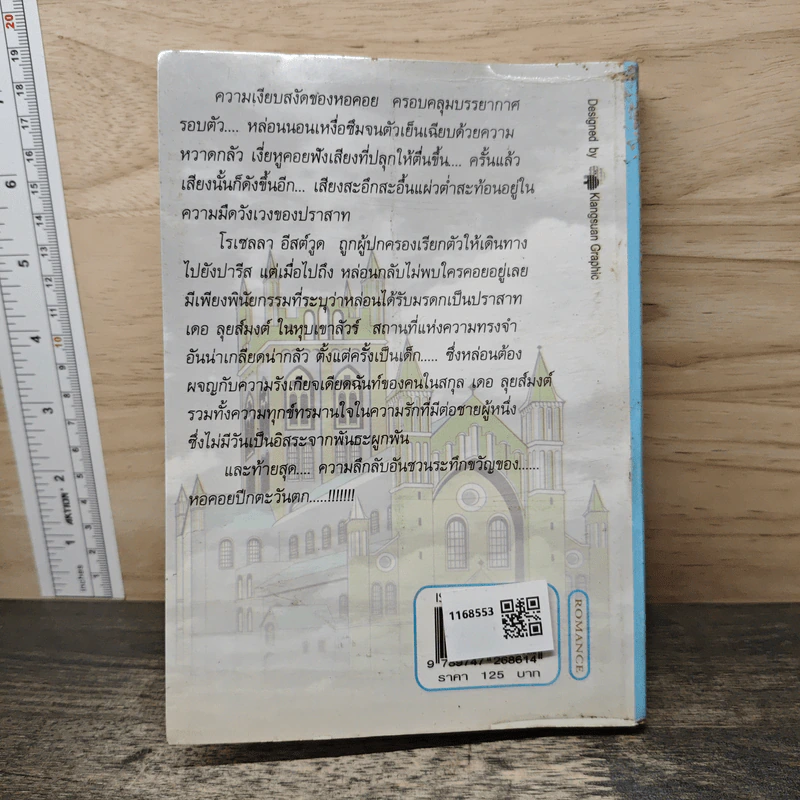 ความเงียบสงัดของหอคอย ครอบคลุมบรรยากาศ
รอบตัว.... หล่อนนอนเหงื่อซึมจนตัวเย็นเฉียบด้วยความ
หวาดกลัว เงี่ยหูคอยฟังเสียงที่ปลุกให้ตื่นขึ้น.... ครั้นแล้ว
เสียงนั้นก็ดังขึ้นอีก... เสียงสะอึกสะอื้นแผ่วต่ำสะท้อนอยู่ใน
ความมืดวังเวงของปราสาท
โรเซลลา อีสต์วูด ถูกผู้ปกครองเรียกตัวให้เดินทาง
ไปยังปารีส แต่เมื่อไปถึง หล่อนกลับไม่พบใครคอยอยู่เลย
มีเพียงพินัยกรรมที่ระบุว่าหล่อนได้รับมรดกเป็นปราสาท
เดอ ลุยส์มงต์ ในหุบเขาลัวร์ สถานที่แห่งความทรงจำ
อันน่าเกลียดน่ากลัว ตั้งแต่ครั้งเป็นเด็ก..... ซึ่งหล่อนต้อง
ผจญกับความรังเกียจเดียดฉันท์ของคนในสกุล เดอ ลุยส์มงต์
รวมทั้งความทุกข์ทรมานใจในความรักที่มีต่อชายผู้หนึ่ง
ซึ่งไม่มีวันเป็นอิสระจากพันธะผูกพัน
และท้ายสุด.... ความลึกลับอันชวนระทึกขวัญของ......
หอคอยปีกตะวันตก.....!!!!!!!
Designed by Klangsuan Graphic
1168553
9 789747 268614
ราคา 125 บาท
ROMANCE
20
19
18
6
5
4
3
2
1
inches